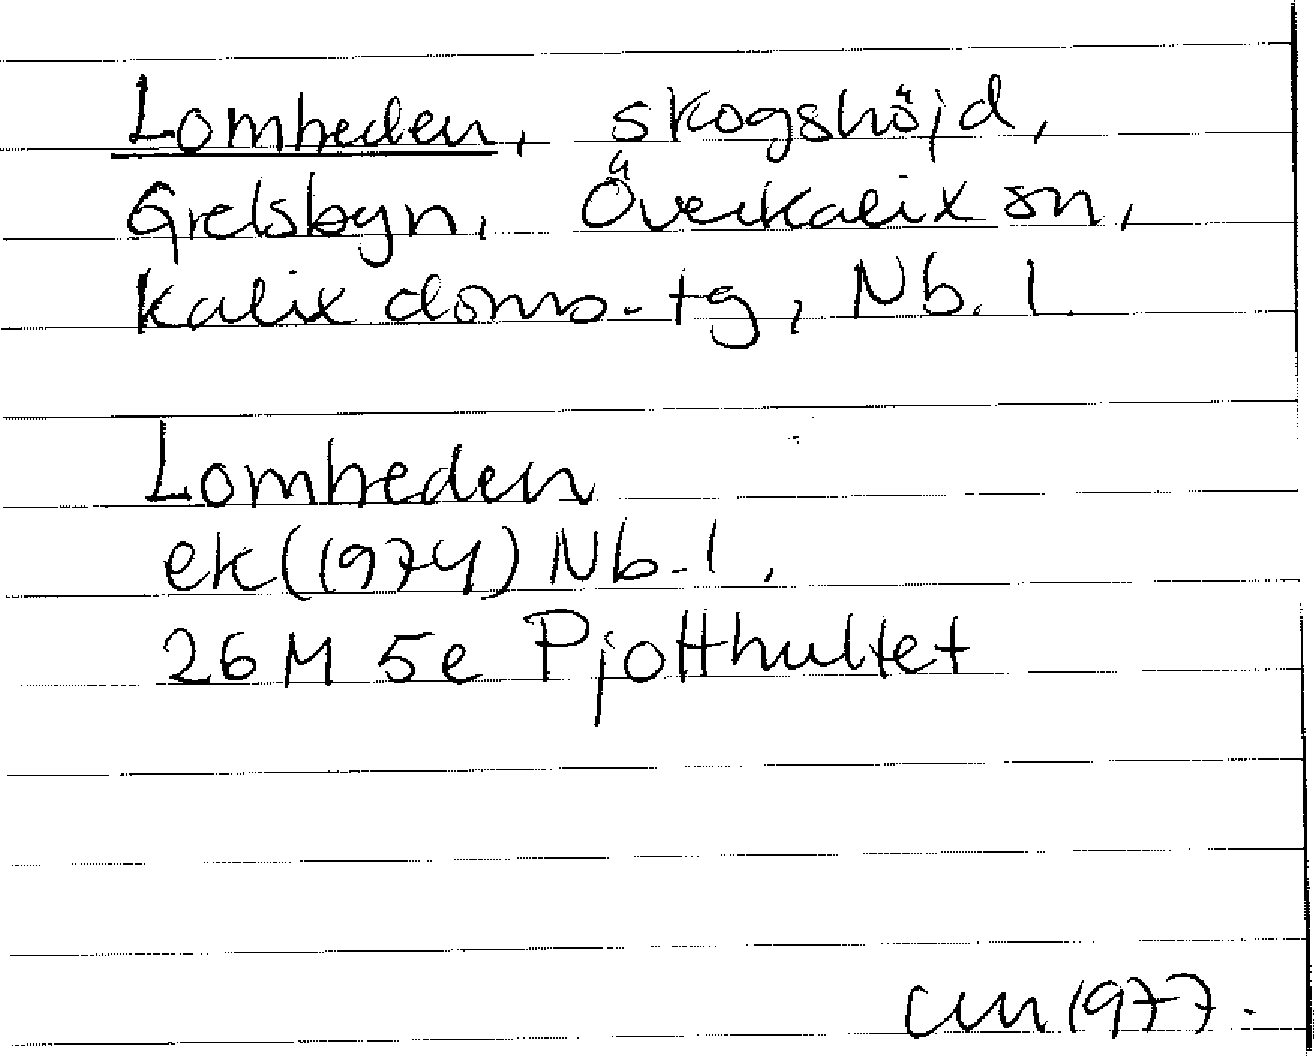 Lomheden, skogshöjd,
Grelsbyn, Överkalix sn,
Kalix doms.-tg, Nb. l.
Lomheden
ek (1974) Nb. l.
26 M 5e Pjotthultet
CM 1977.